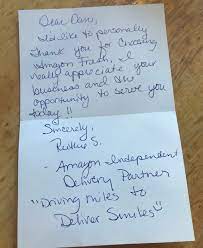 Dear Dave,
I'd like to personally
thank you for choosing
Amazon Fresh, I
really appreciate your
business and the
opportunity to serve you
today!!
Sincerely,
S.
- Amazon Independent
Delivery Partner
"Driving miles to
Deliver Smiles"